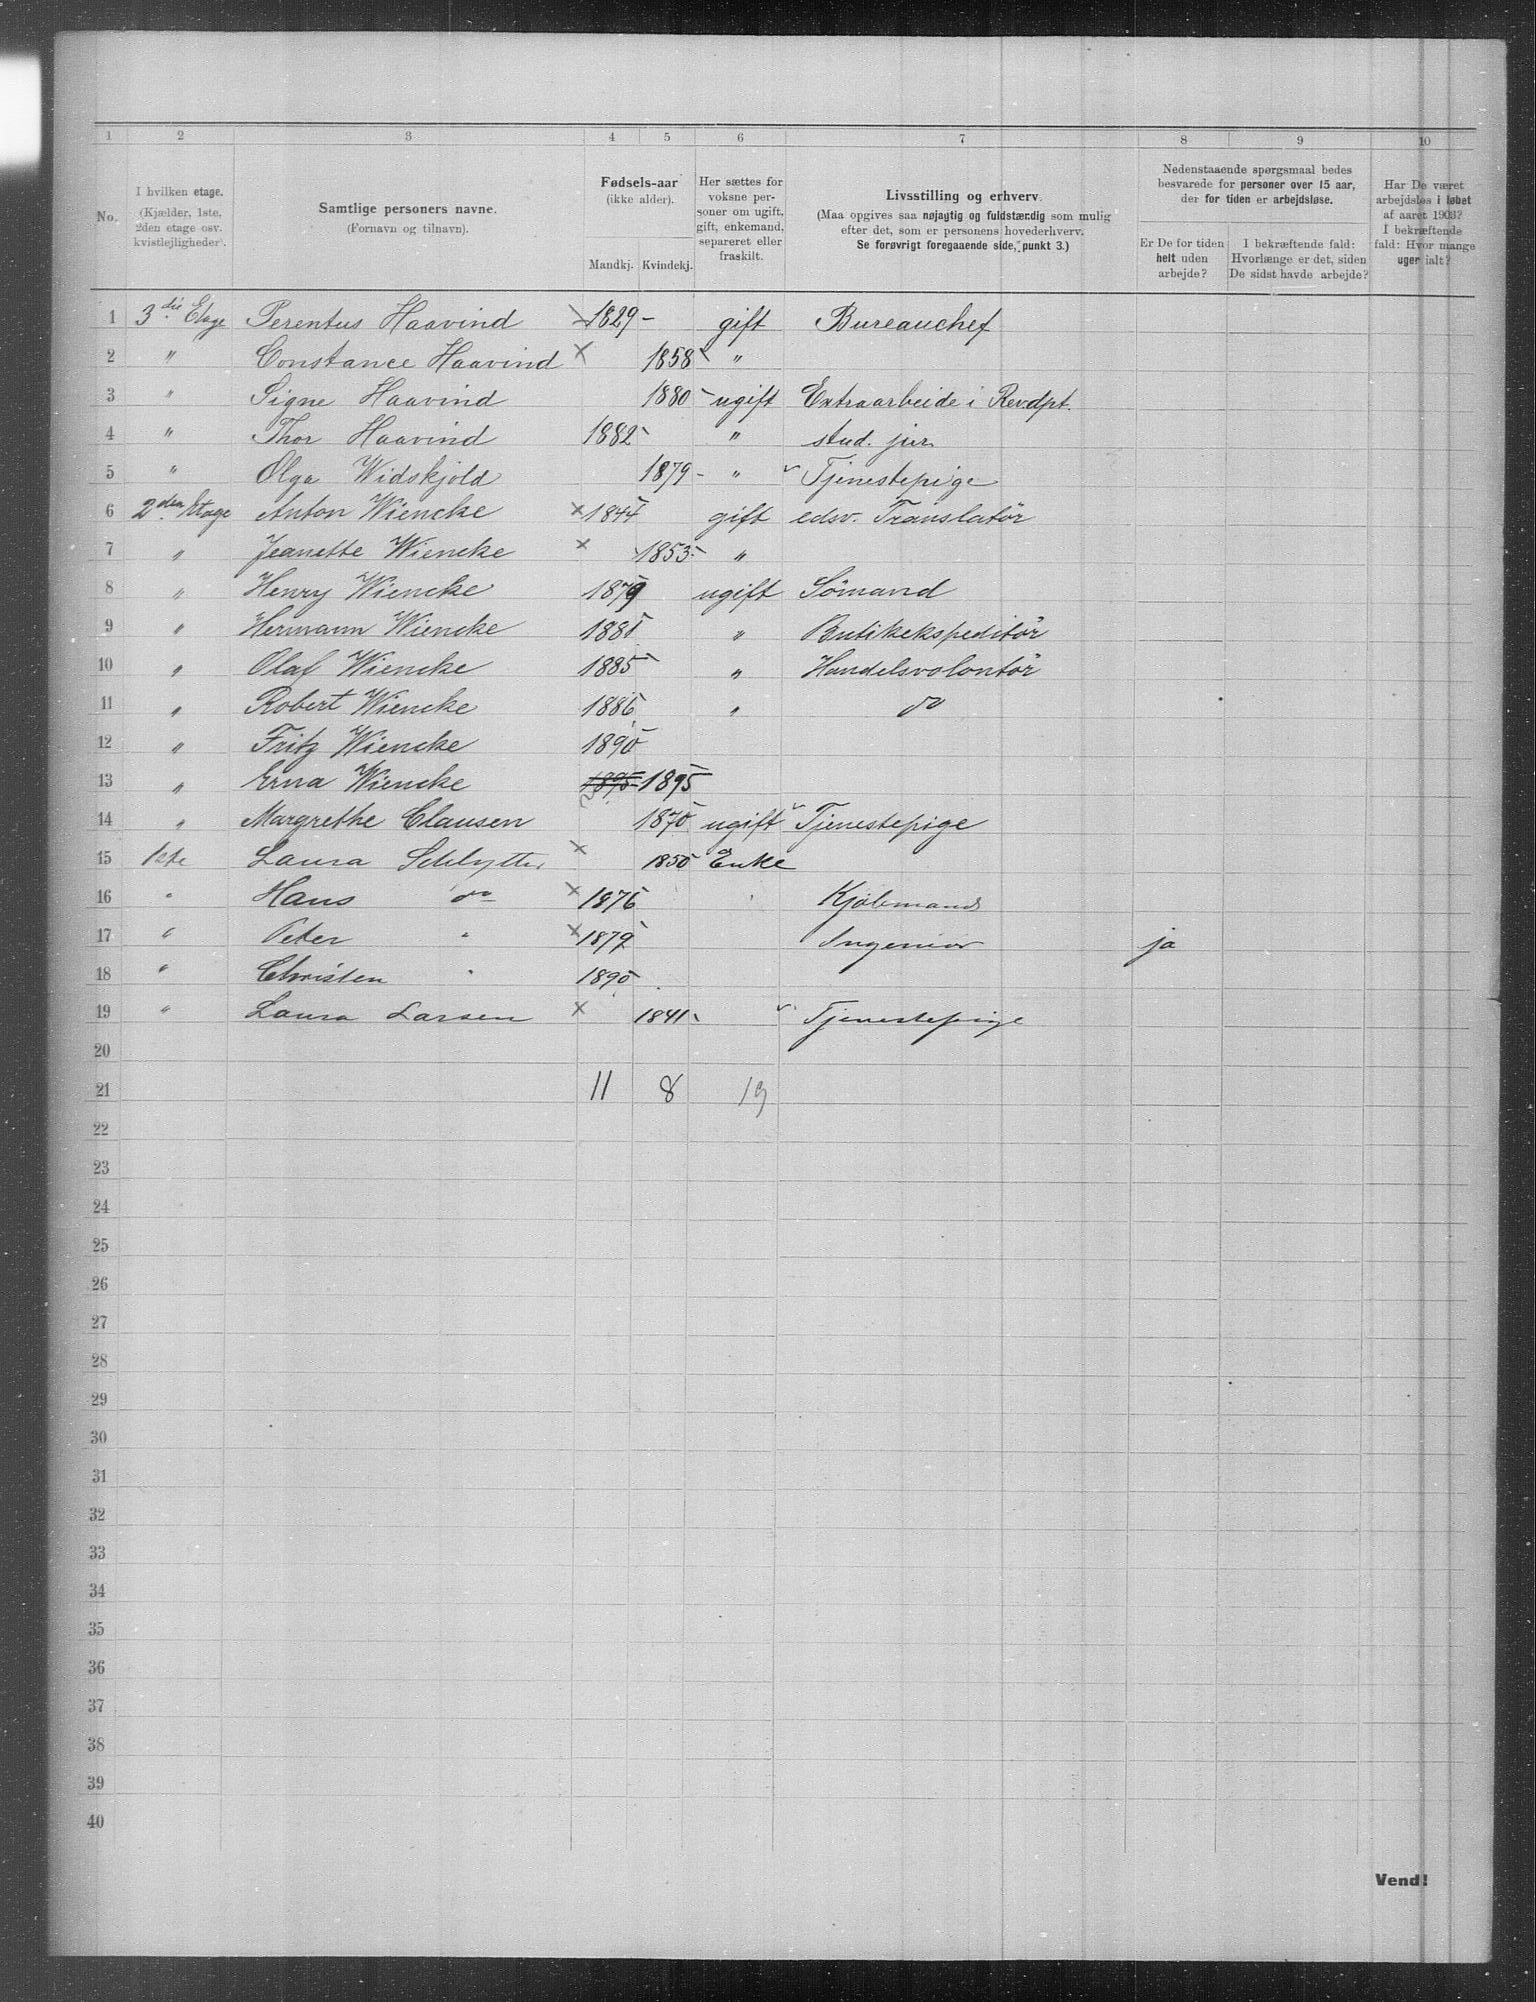 1 2 3 4 5 6 7 8 9 10
No.
I hvilken etage.
(Kjælder, 1ste,
2den etage osv.
kvistlejligheder).
Samtlige personers navne.
(Fornavn og tilnavn).
Fødsels-aar
(ikke alder).
Mandkj. Kvindekj.
Her sættes for
voksne per-
soner om ugift,
gift, enkemand,
separeret eller
fraskilt.
Livsstilling og erhverv.
(Maa opgives saa nøjagtig og fuldstændig som mulig
efter det, som er personens hovederhverv.
Se forøvrigt foregaaende side, punkt 3.)
Nedenstaaende spørgsmaal bedes
besvarede for personer over 15 aar,
der for tiden er arbejdsløse.
Er De for tiden
helt uden
arbejde?
I bekræftende fald:
Hvorlænge er det, siden
De sidst havde arbejde?
Har De været
arbejdsløs i løbet
af aaret 1903?
I bekræftende
fald: Hvor mange
uger ialt?
1 3die Etage Perentus Haavind 1829 - gift Bureauchef
2 " Constance Haavind × 1858 "
3 " Signe Haavind 1880 ugift Extraarbeide i Rev.dpt.
4 " Thor Haavind 1882 " stud. jur.
5 " Olga Widskjold 1879 - " Tjenestepige
6 2den Etage Anton Wiencke × 1844 gift edsv. Translatör
7 " Jeanette Wiencke × 1853 "
8 " Henry Wiencke 1879 ugift Sömand
9 " Hermann Wiencke 1881 " Butikekspeditör
10 " Olaf Wiencke 1885 " Handelsvolontör
11 " Robert Wiencke 1886 " do
12 " Fritz Wiencke 1890
13 " Erna Wiencke 1895 1895
14 " Margrethe Clausen 1870 ugift Tjenestepige
15 1ste Laura Schlytter × 1850 Enke
16 " Hans do × 1876 Kjöbmand
17 " Peter " × 1879 Ingeniör ja
18 " Christen " 1890
19 " Laura Larsen × 1841 Tjenestepige
20
21 11 8 19
22
23
24
25
26
27
28
29
30
31
32
33
34
35
36
37
38
39
40
Vend!